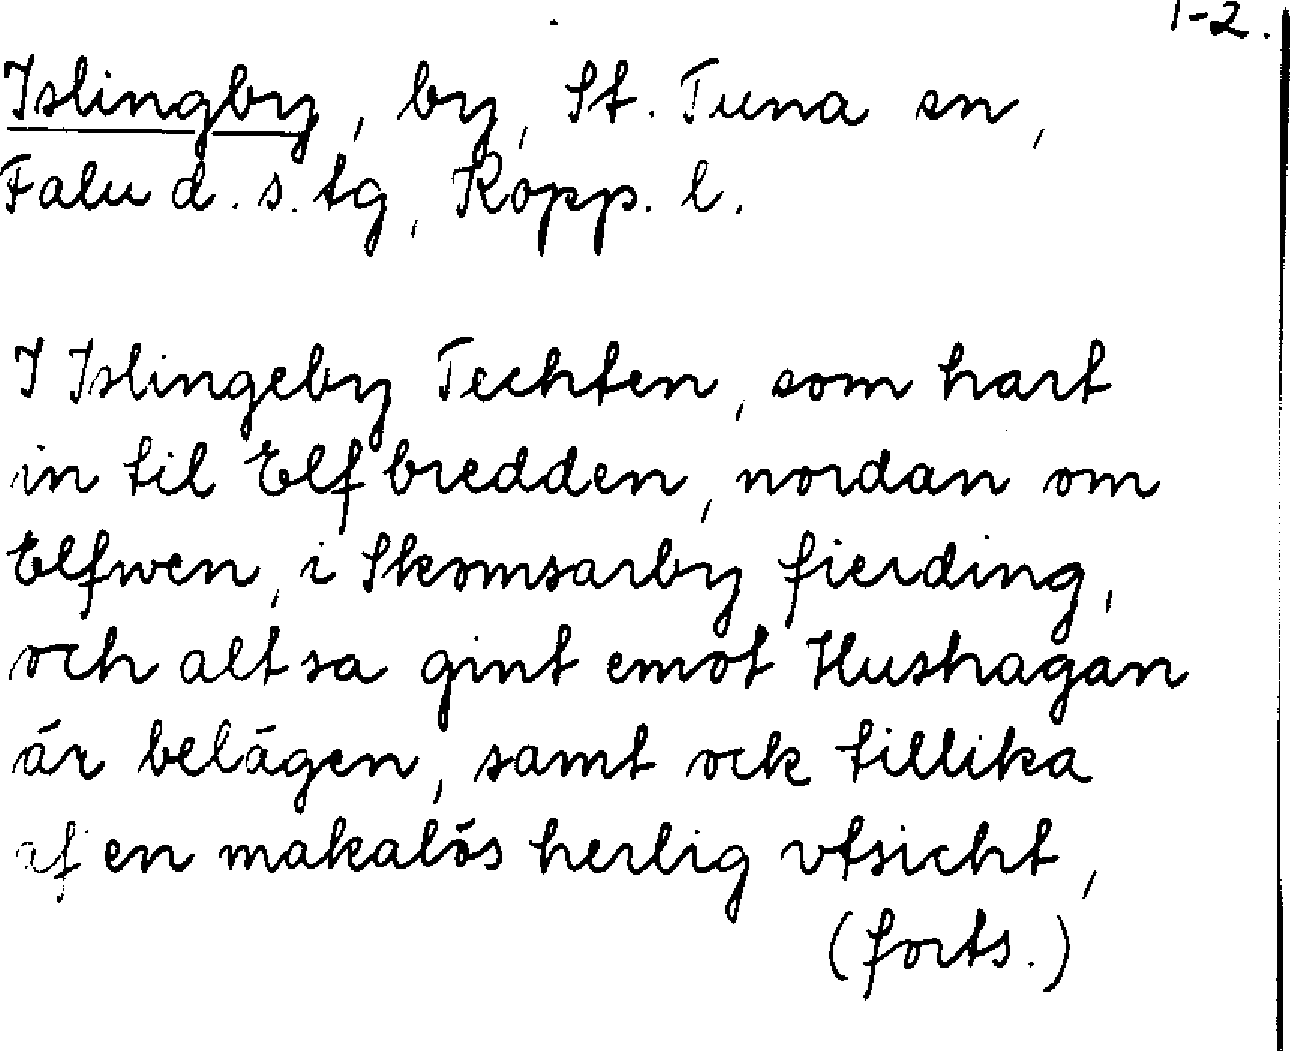 1-2.
Islingby, by, St. Tuna sn,
Falu d. s. tg, Kopp. l.
I Islingeby Techten, som hart
in til Elfbredden, nordan om
Elfwen, i Skomsarby fierding,
och altsa gint emot Hushagan
är belägen, samt ock tillika
af en makalös herlig vtsicht,
(forts.)